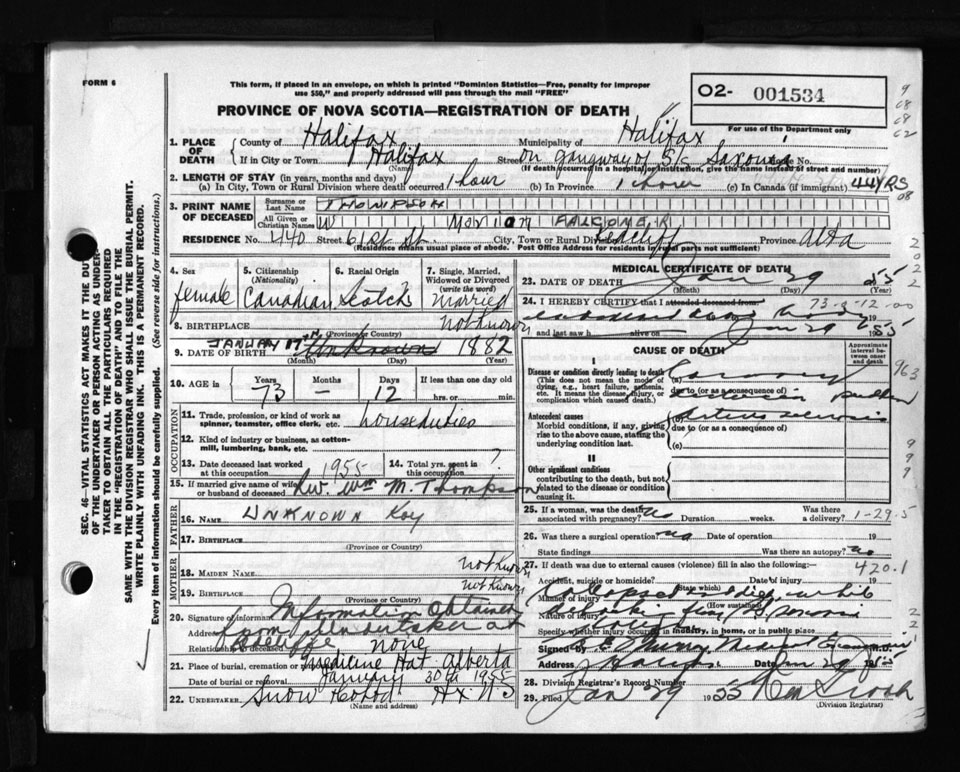 FORM 6
This form, if placed in an envelope, on which is printed "Dominion Statistics—Free, penalty for improper
use $50," and properly addressed will pass through the mail "FREE"
PROVINCE OF NOVA SCOTIA—REGISTRATION OF DEATH
O2- 001534
For use of the Department only
SEC. 46—VITAL STATISTICS ACT MAKES IT THE DUTY
OF THE UNDERTAKER OR PERSON ACTING AS UNDER-
TAKER TO OBTAIN ALL THE PARTICULARS REQUIRED
IN THE "REGISTRATION OF DEATH" AND TO FILE THE
SAME WITH THE DIVISION REGISTRAR WHO SHALL ISSUE THE BURIAL PERMIT.
WRITE PLAINLY WITH UNFADING INK. THIS IS A PERMANENT RECORD.
Every item of information should be carefully supplied. (See reverse side for instructions.)
1. PLACE OF DEATH
County of Halifax Municipality of Halifax
If in City or Town Halifax Street on gangway of S/S Saxonia No.
(Name) (If death occurred in a hospital or institution, give the name instead of street and number)
2. LENGTH OF STAY (in years, months and days)
(a) In City, Town or Rural Division where death occurred 1 hour (b) In Province 1 hour (c) In Canada (if immigrant) 44 YRS
3. PRINT NAME OF DECEASED
Surname or Last Name THOMPSON
All Given or Christian Names W Marion FALCONER
RESIDENCE No. 440 Street 61st St. City, Town or Rural Div. Redcliff Province Alta
(Residence means usual place of abode. Post Office Address for residents in rural parts not sufficient)
4. Sex female
5. Citizenship (Nationality) Canadian
6. Racial Origin Scotch
7. Single, Married, Widowed or Divorced (write the word) married
8. BIRTHPLACE not known
(Province or Country)
9. DATE OF BIRTH JANUARY 17TH Unknown 1882
(Month) (Day) (Year)
10. AGE in Years 73 Months — Days 12 If less than one day old hrs. or min.
OCCUPATION
11. Trade, profession, or kind of work as spinner, teamster, office clerk, etc. houseduties
12. Kind of industry or business, as cotton-mill, lumbering, bank, etc.
13. Date deceased last worked at this occupation 1955
14. Total yrs. spent in this occupation ?
15. If married give name of wife or husband of deceased Rev. Wm M. Thompson
FATHER
16. NAME UNKNOWN Roy
17. BIRTHPLACE
(Province or Country)
MOTHER
18. MAIDEN NAME not Known
19. BIRTHPLACE not Known
(Province or Country)
20. Signature of informant Information Obtained
Address from undertaker at
Redcliffe
Relationship to deceased none
21. Place of burial, cremation or removal Medicine Hat Alberta
Date of burial or removal January 30th 1955
22. UNDERTAKER Snow Hx. N S
(Name and address)
MEDICAL CERTIFICATE OF DEATH
23. DATE OF DEATH Jan 29 1955
(Month) (Day) (Year)
24. I HEREBY CERTIFY that I attended deceased from: 73-0-12-00
body 19
and last saw h alive on Jan 29 1955
CAUSE OF DEATH
Approximate interval between onset and death
I
Disease or condition directly leading to death (a) Coronary
(This does not mean the mode of dying, e.g., heart failure, asthenia, etc. It means the disease, injury, or complication which caused death.)
due to (or as a consequence of)
Antecedent causes
Morbid conditions, if any, giving rise to the above cause, stating the underlying condition last.
(b)
due to (or as a consequence of)
(c)
II
Other significant conditions
contributing to the death, but not related to the disease or condition causing it.
25. If a woman, was the death associated with pregnancy? no Duration weeks. Was there a delivery? 1-29-5
26. Was there a surgical operation? no Date of operation 19
State findings Was there an autopsy? no
27. If death was due to external causes (violence) fill in also the following:— 420.1
Accident, suicide or homicide? Date of injury 19
(State which)
Manner of injury Collapsed died while
(How sustained)
Nature of injury from
Specify whether injury occurred in industry, in home, or in public place
Signed by M.D.
Address Halifax Date Jan 29 1955
28. Division Registrar's Record Number
29. Filed Jan 29 1955
(Division Registrar)